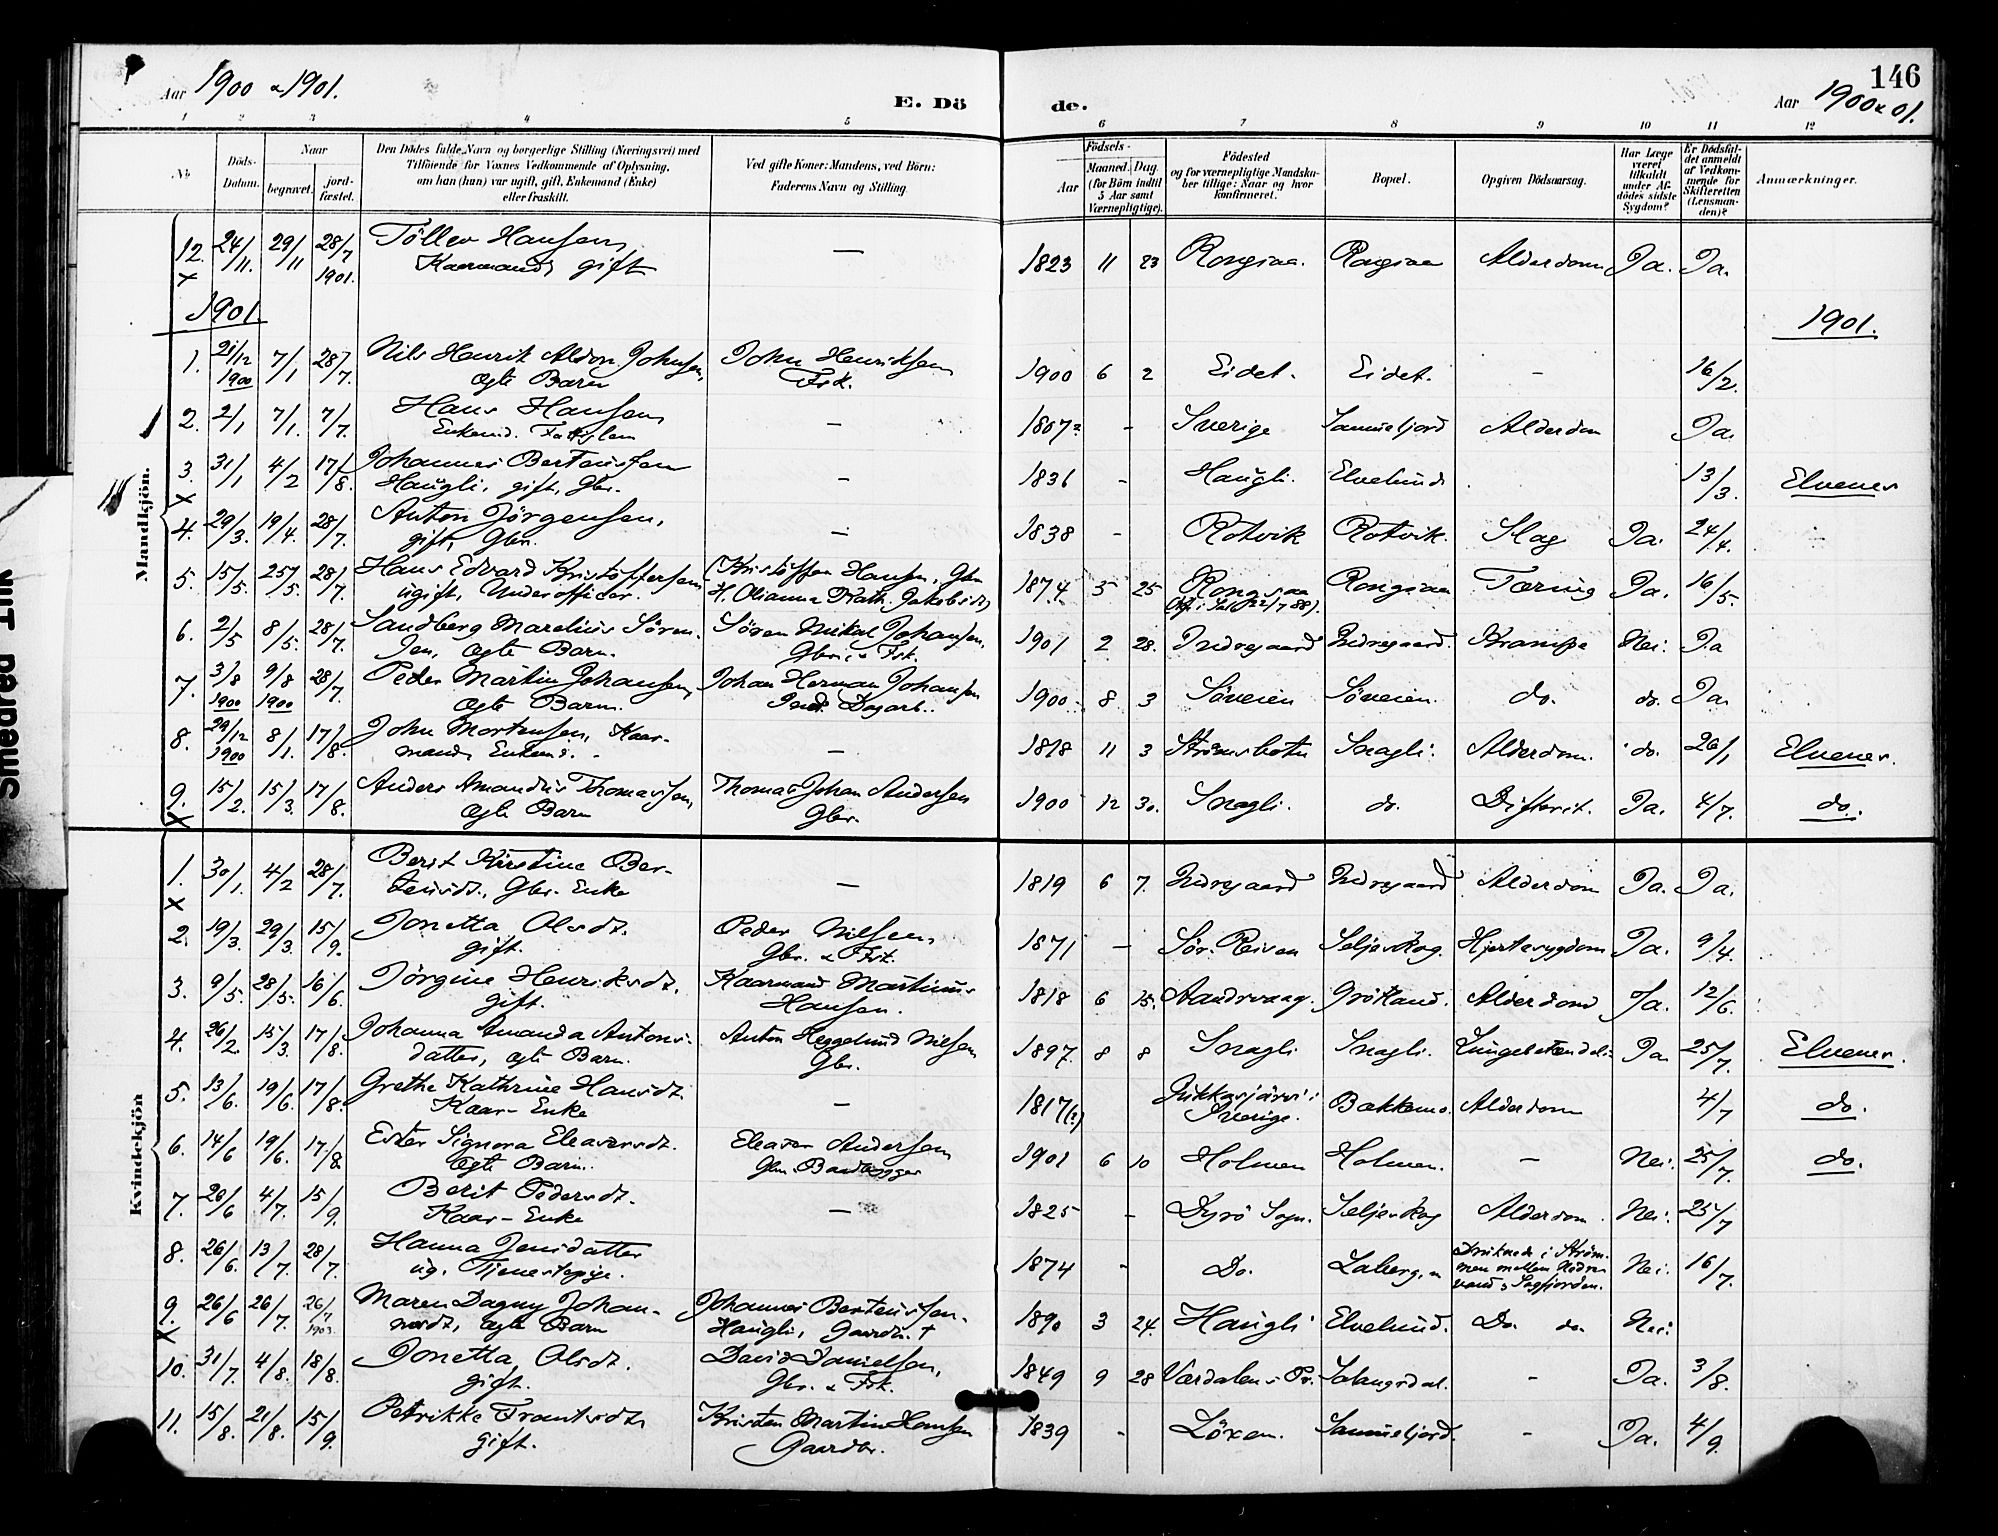 146
Aar 1900 & 1901.
E. Dö
de.
Aar 1900 & 01.
1 2 3 4 5 6 7 8 9 10 11 12
No
Döds-
Datum.
Naar
begravet.
jord-
fæstet.
Den Dödes fulde Navn og borgerlige Stilling (Næringsvei) med
Tilföiende for Voxnes Vedkommende af Oplysning,
om han (hun) var ugift, gift, Enkemand (Enke)
eller fraskilt.
Ved gifte Koner: Mandens, ved Börn:
Faderens Navn og Stilling.
Födsels-
Aar
Maaned. Dag.
(for Börn indtil
5 Aar samt
Værnepligtige).
Födested
og for værnepligtige Mandska-
ber tillige: Naar og hvor
konfirmeret.
Bopæl.
Opgiven Dödsaarsag.
Har Læge
været
tilkaldt
under Af-
dödes sidste
Sygdom?
Er Dödsfal-
det anmeldt
af Vedkom-
mende for
Skifteretten
(Lensman-
den)?
Anmærkninger.
Mandkjön.
12. 24/11. 29/11 28/7 1901. Töllev Hansen, Kaarmand, gift — 1823 11 23 Rongiaa. Rongiaa Alderdom Ja. Ja.
×
1901.
1901.
1. 21/12 1900 7/1 28/7. Nils Henrik Aldon Johnsen, ægte Barn John Henriksen Fisk. 1900 6 2 Eidet. Eidet. - 16/2.
2. 2/1 7/1. 7/7. Hans Hansen, Enkemd. Fattiglem - 1807? - Sverige Sammelfjord Alderdom Ja.
3. 31/1 4/2 17/8. Johannes Berteussen Haugli, gift, Gbr. - 1836 - Haugli. Elvelund 13/3. Elvenes
×
4. 29/3. 19/4. 28/7. Anton Jörgensen, gift, Gbr. - 1838 - Rotvik Rotvik. Slag Ja. 24/4.
5. 15/5. 25/5. 28/7. Hans Edvard Kristoffersen, ugift, Underofficer. Kristoffer Hansen, Gbr H. Olianna Kath. Jakobsdt. 1874 5 25 Rongiaa Rongiaa Tæring Ja. 16/5.
6. 2/5 8/5. 28/7. Sandberg Marelius Sören- sen, ægte Barn. Sören Mikal Johansen, Gbr. & Fisk. 1901 2 28. Indregaard Indregaard. Krampe Nei. Ja
7. 3/8 1900 9/8 1900 28/7. Peder Martin Johansen, ægte Barn. Johan Herman Johansen Dagarb. 1900 8 3 Söveien Söveien. do. do. Ja.
8. 29/12 1900 8/1. 17/8. John Mortensen, Kaar- mand, Enkemd. - 1818 11 3 Strömsbotn Snagli. Alderdom. do. 26/1 Elvenes.
9. 15/2. 15/3. 17/8. Anders Amandus Thomassen, ægte Barn Thomas Johan Andersen Gbr. 1900 12 30. Snagli. do. Difterit. Ja. 4/7. do.
×
Kvindekjön
1. 30/1. 4/2 28/7. Berit Kirstine Ber- teusdt., Gbr. Enke — 1819 6 7. Indregaard Indregaard Alderdom Ja. Ja.
×
2. 19/3. 29/3. 15/9. Jonetta Olsdt. gift. Peder Nilsen, Gbr. & Fisk. 1871 - Sör-Reisen Seljeskog. Hjertesygdom Ja. 9/4.
3. 9/5. 28/5. 16/6. Jörgine Henriksdt. gift. Kaarmand Martinus Hansen. 1818 6 15. Aandervaag. Grötland. Alderdom Ja. 12/6.
4. 26/2. 15/3. 17/8. Johanna Amanda Antons- datter, ægte Barn. Anton Heggelund Nilsen Gbr. 1897. 8 8 Snagli Snagli. Lungebetændelse Ja 25/7. Elvenes.
5. 13/6. 19/6. 17/8. Grethe Kathrine Hansdt. Kaar-Enke — 1817(?) Jukkasjärvi i Sverige. Bakkemo. Alderdom 4/7 do.
6. 14/6 19/6. 17/8. Ester Signora Eleasersdt. ægte Barn. Eleaser Andersen Gbr. Baadbygger 1901 6 10 Holmen Holmen. — Nei. 25/7. do.
7. 26/6 4/7. 15/9. Berit Pedersdt. Kaar-Enke — 1825 - Dyrö Sogn. Seljeskog Alderdom. Nei. 25/7
8. 26/6. 13/7. 28/7. Hanna Jensdatter ug. Tjenestepige. 1874 - Do. Laberg. Druknede i Ström- men mellem Nedre- vand & Sagfjorden. Nei. 16/7.
9. 26/6 26/7. 26/7 1903. Maren Dagny Johan- nesdt., ægte Barn Johannes Berteussen Haugli, Gaardbr. † 1890 3 24. Haugli Elvelund. Do. do. Nei.
×
10. 31/7. 4/8. 18/8. Jonetta Olsdt. gift. David Danielsen, Gbr. & Fisk. 1849 9 28 Værdalens Pr. Salangsdal. - Ja. 3/8.
11. 15/8. 21/8. 15/9. Petrikke Frantsdt. gift. Kristen Martin Hansen Gaardbr. 1839 - Löxen. Sammelfjord. - Ja. 4/9.